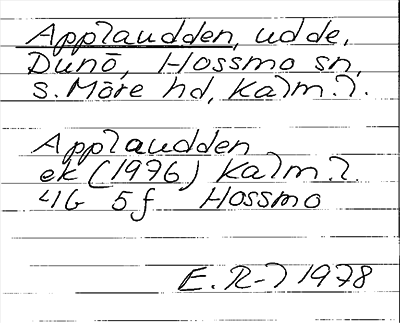 Applaudden, udde,
Dunö, Hossmo sn,
S. Möre hd, Kalm. l.
Applaudden
ek (1976) Kalm. l.
4G 5f Hossmo
E. R-l 1978